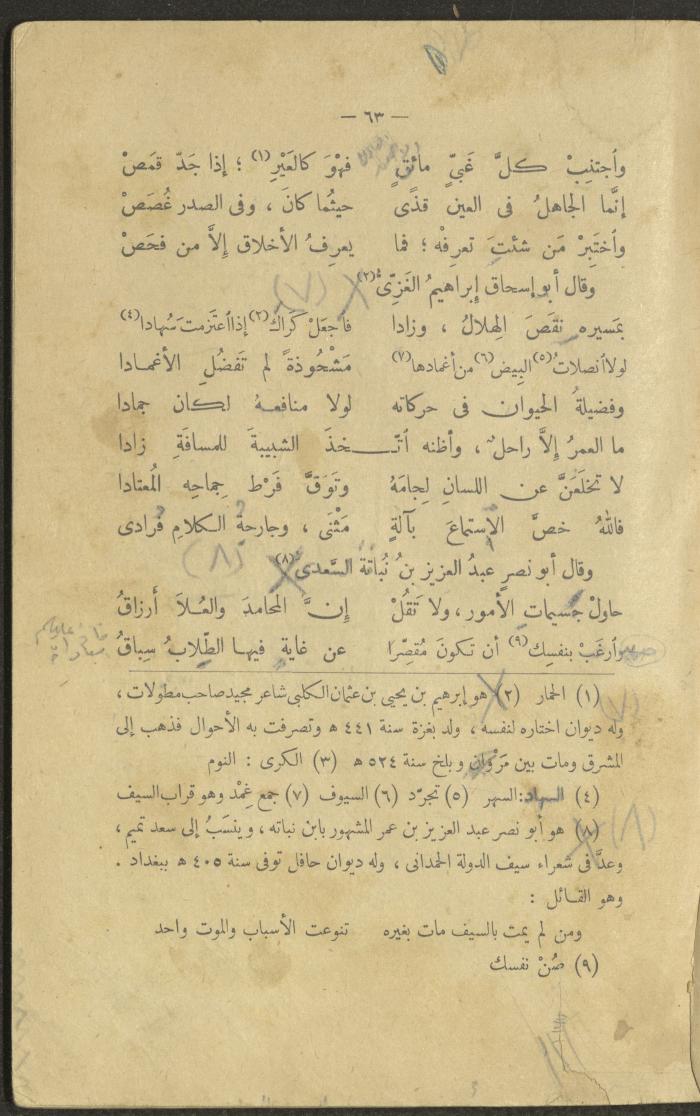 — ٦٣ —
وٱجتنِبْ كلَّ غَبيٍّ مائقٍ فهْوَ كالعَيْرِ (١) ؛ إذا جَدّ قمَصْ
إنَّما الجاهلُ فى العين قذًى حيثُما كانَ ، وفى الصدر غُصَصْ
وٱختَبِرْ مَن شئتَ تعرِفْه ؛ فما يعرِفُ الأخلاق إلاَّ من فحَصْ
وقال أبو إسحاق إبراهيمُ الغَزِّىّ (٢) (٧)
بمَسيره نقَصَ الهِلالُ ، وزادا فاجعَلْ كَرَاكَ (٣) إذا ٱعتَزمتَ سُهادا (٤)
لولا ٱنصلاتُ (٥) البِيض (٦) من أغمادها (٧) مَشْحُوذةً لم تَفضُلِ الأغمادا
وفضيلةُ الحيوان فى حركاته لولا منافعهُ لكان جمادا
ما العمرُ إلاَّ راحلٌ ، وأظنه ٱتّخذَ الشبيبةَ للمسافَةِ زادا
لا تخلَعَنَّ عن اللسانِ لِجامَهُ وتَوَقَّ فَرْط جِماحِه المُعتادا
فاللهُ خصَّ الاستماعَ بآلةٍ مَثْنَى ، وجارحةَ الكلامِ فُرادى
وقال أبو نصرٍ عبدُ العزيز بنُ نُباتةَ السَّعدى (٨) (٨)
حاوِلْ جَسيمات الأمور ، ولا تَقُلْ إنَّ المحامدَ والعُلاَ أَرزاقُ
وٱرغَبْ بنفسِك (٩) أن تكونَ مُقصِّرا عن غايةٍ فيها الطِّلابُ سِباقُ
(١) الحمار (٢) هو إبرهيم بن يحيى بن عثمان الكلبى شاعر مجيد صاحب مطولات ،
وله ديوان اختاره لنفسه ، ولد بغزة سنة ٤٤١ ه وتصرفت به الأحوال فذهب إلى
المشرق ومات بين مَرْو وبلخ سنة ٥٢٤ ه (٣) الكرى : النوم
(٤) السهاد : السهر (٥) تجرّد (٦) السيوف (٧) جمع غِمْد وهو قراب السيف
(٨) هو أبو نصر عبد العزيز بن عمر المشهور بابن نباته ، وينسَبُ إلى سعد تميم ،
وعدَّ فى شعراء سيف الدولة الحمدانى ، وله ديوان حافل توفى سنة ٤٠٥ ه ببغداد .
وهو القائل :
ومن لم يمت بالسيف مات بغيره تنوعت الأسباب والموت واحد
(٩) صُنْ نفسك